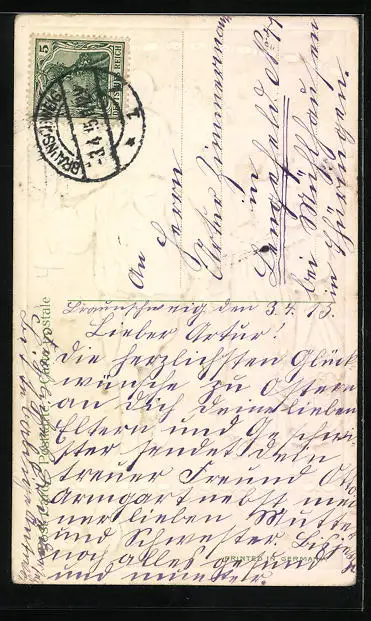 5
DEUTSCHES REICH
BRAUNSCHWEIG
3.4.15
An Herrn
Artur Zimmermann
in
Lengefeld No 77
bei Mühlhausen
in Thüringen.
Braunschweig den 3.4.15.
Lieber Artur!
Die herzlichsten Glück
wünsche zu Ostern
an dich deine lieben
Eltern und Geschwi
ster sendet dein
treuer Freund Otto
Armgart nebst mei
ner lieben Mutter
und Schwester. Bis jetzt
noch alles gesund
und munter.
PRINTED IN GERMANY